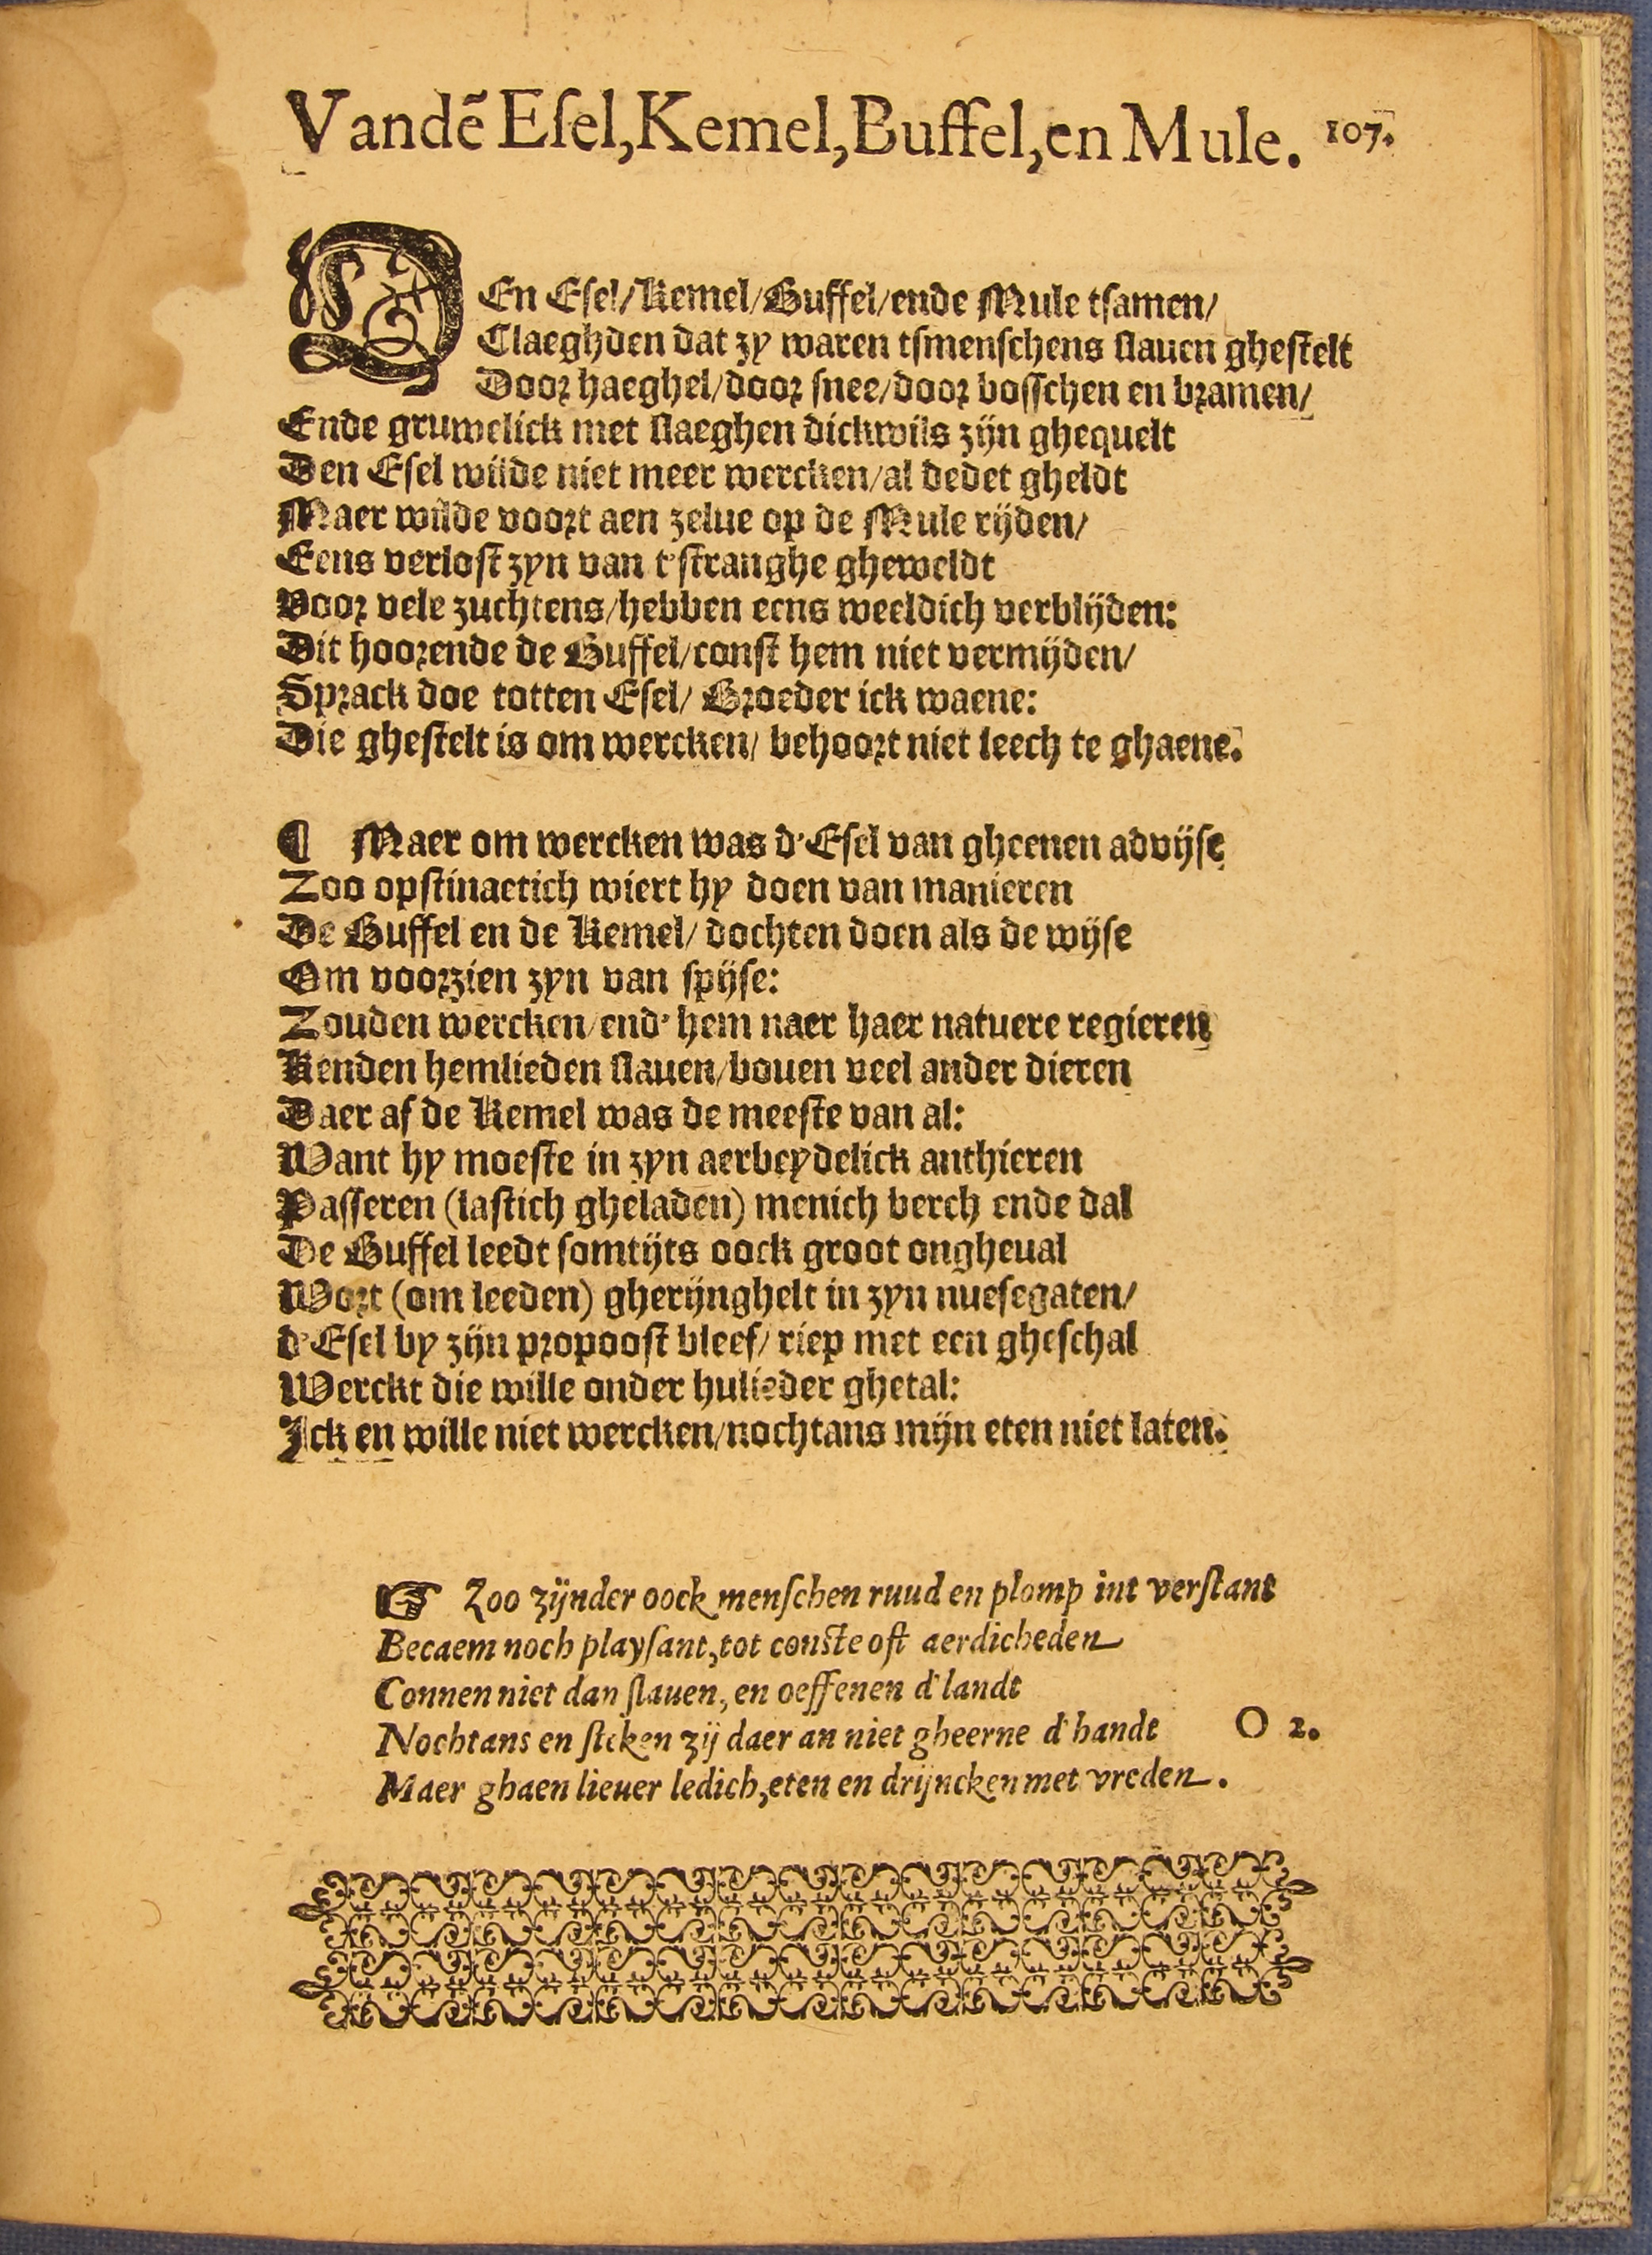 Vandẽ Eſel, Kemel, Buffel, en Mule. 107.
DEn Eſel/ Kemel/ Buffel/ ende Mule tſamen/
Claeghden dat zy waren tſmenſchens ſlauen gheſtelt
Door haeghel/ door ſnee/ door boſſchen en bramen/
Ende gruwelick met ſlaeghen dickwils zijn ghequelt
Den Eſel wilde niet meer wercken/ al dedet gheldt
Maer wilde voort aen zelue op de Mule rijden/
Eens verloſt zyn van t'ſtranghe gheweldt
Voor vele zuchtens/ hebben eens weeldich verblijden:
Dit hoorende de Buffel/ conſt hem niet vermijden/
Sprack doe totten Eſel/ Broeder ick waene:
Die gheſtelt is om wercken/ behoort niet leech te ghaene.
¶ Maer om wercken was d'Eſel van gheenen advijſe
Zoo opſtinaetich wiert hy doen van manieren
De Buffel en de Kemel/ dochten doen als de wijſe
Om voorzien zyn van ſpijſe:
Zouden wercken/ end' hem naer haer natuere regieren
Kenden hemlieden ſlauen/ bouen veel ander dieren
Daer af de Kemel was de meeſte van al:
Want hy moeſte in zyn aerbeydelick anthieren
Paſſeren (laſtich gheladen) menich berch ende dal
De Buffel leedt ſomtijts oock groot ongheual
Wort (om leeden) gherijnghelt in zyn nueſegaten/
d'Eſel by zijn propooſt bleef/ riep met een gheſchal
Werckt die wille onder hulieder ghetal:
Ick en wille niet wercken/ nochtans mijn eten niet laten.
☞ Zoo zijnder oock menſchen ruud en plomp int verſtant
Becaem noch playſant, tot conſte oft aerdicheden
Connen niet dan ſlauen, en oeffenen d'landt
Nochtans en ſteken zij daer an niet gheerne d'handt O 2.
Maer ghaen lieuer ledich, eten en drijncken met vreden.